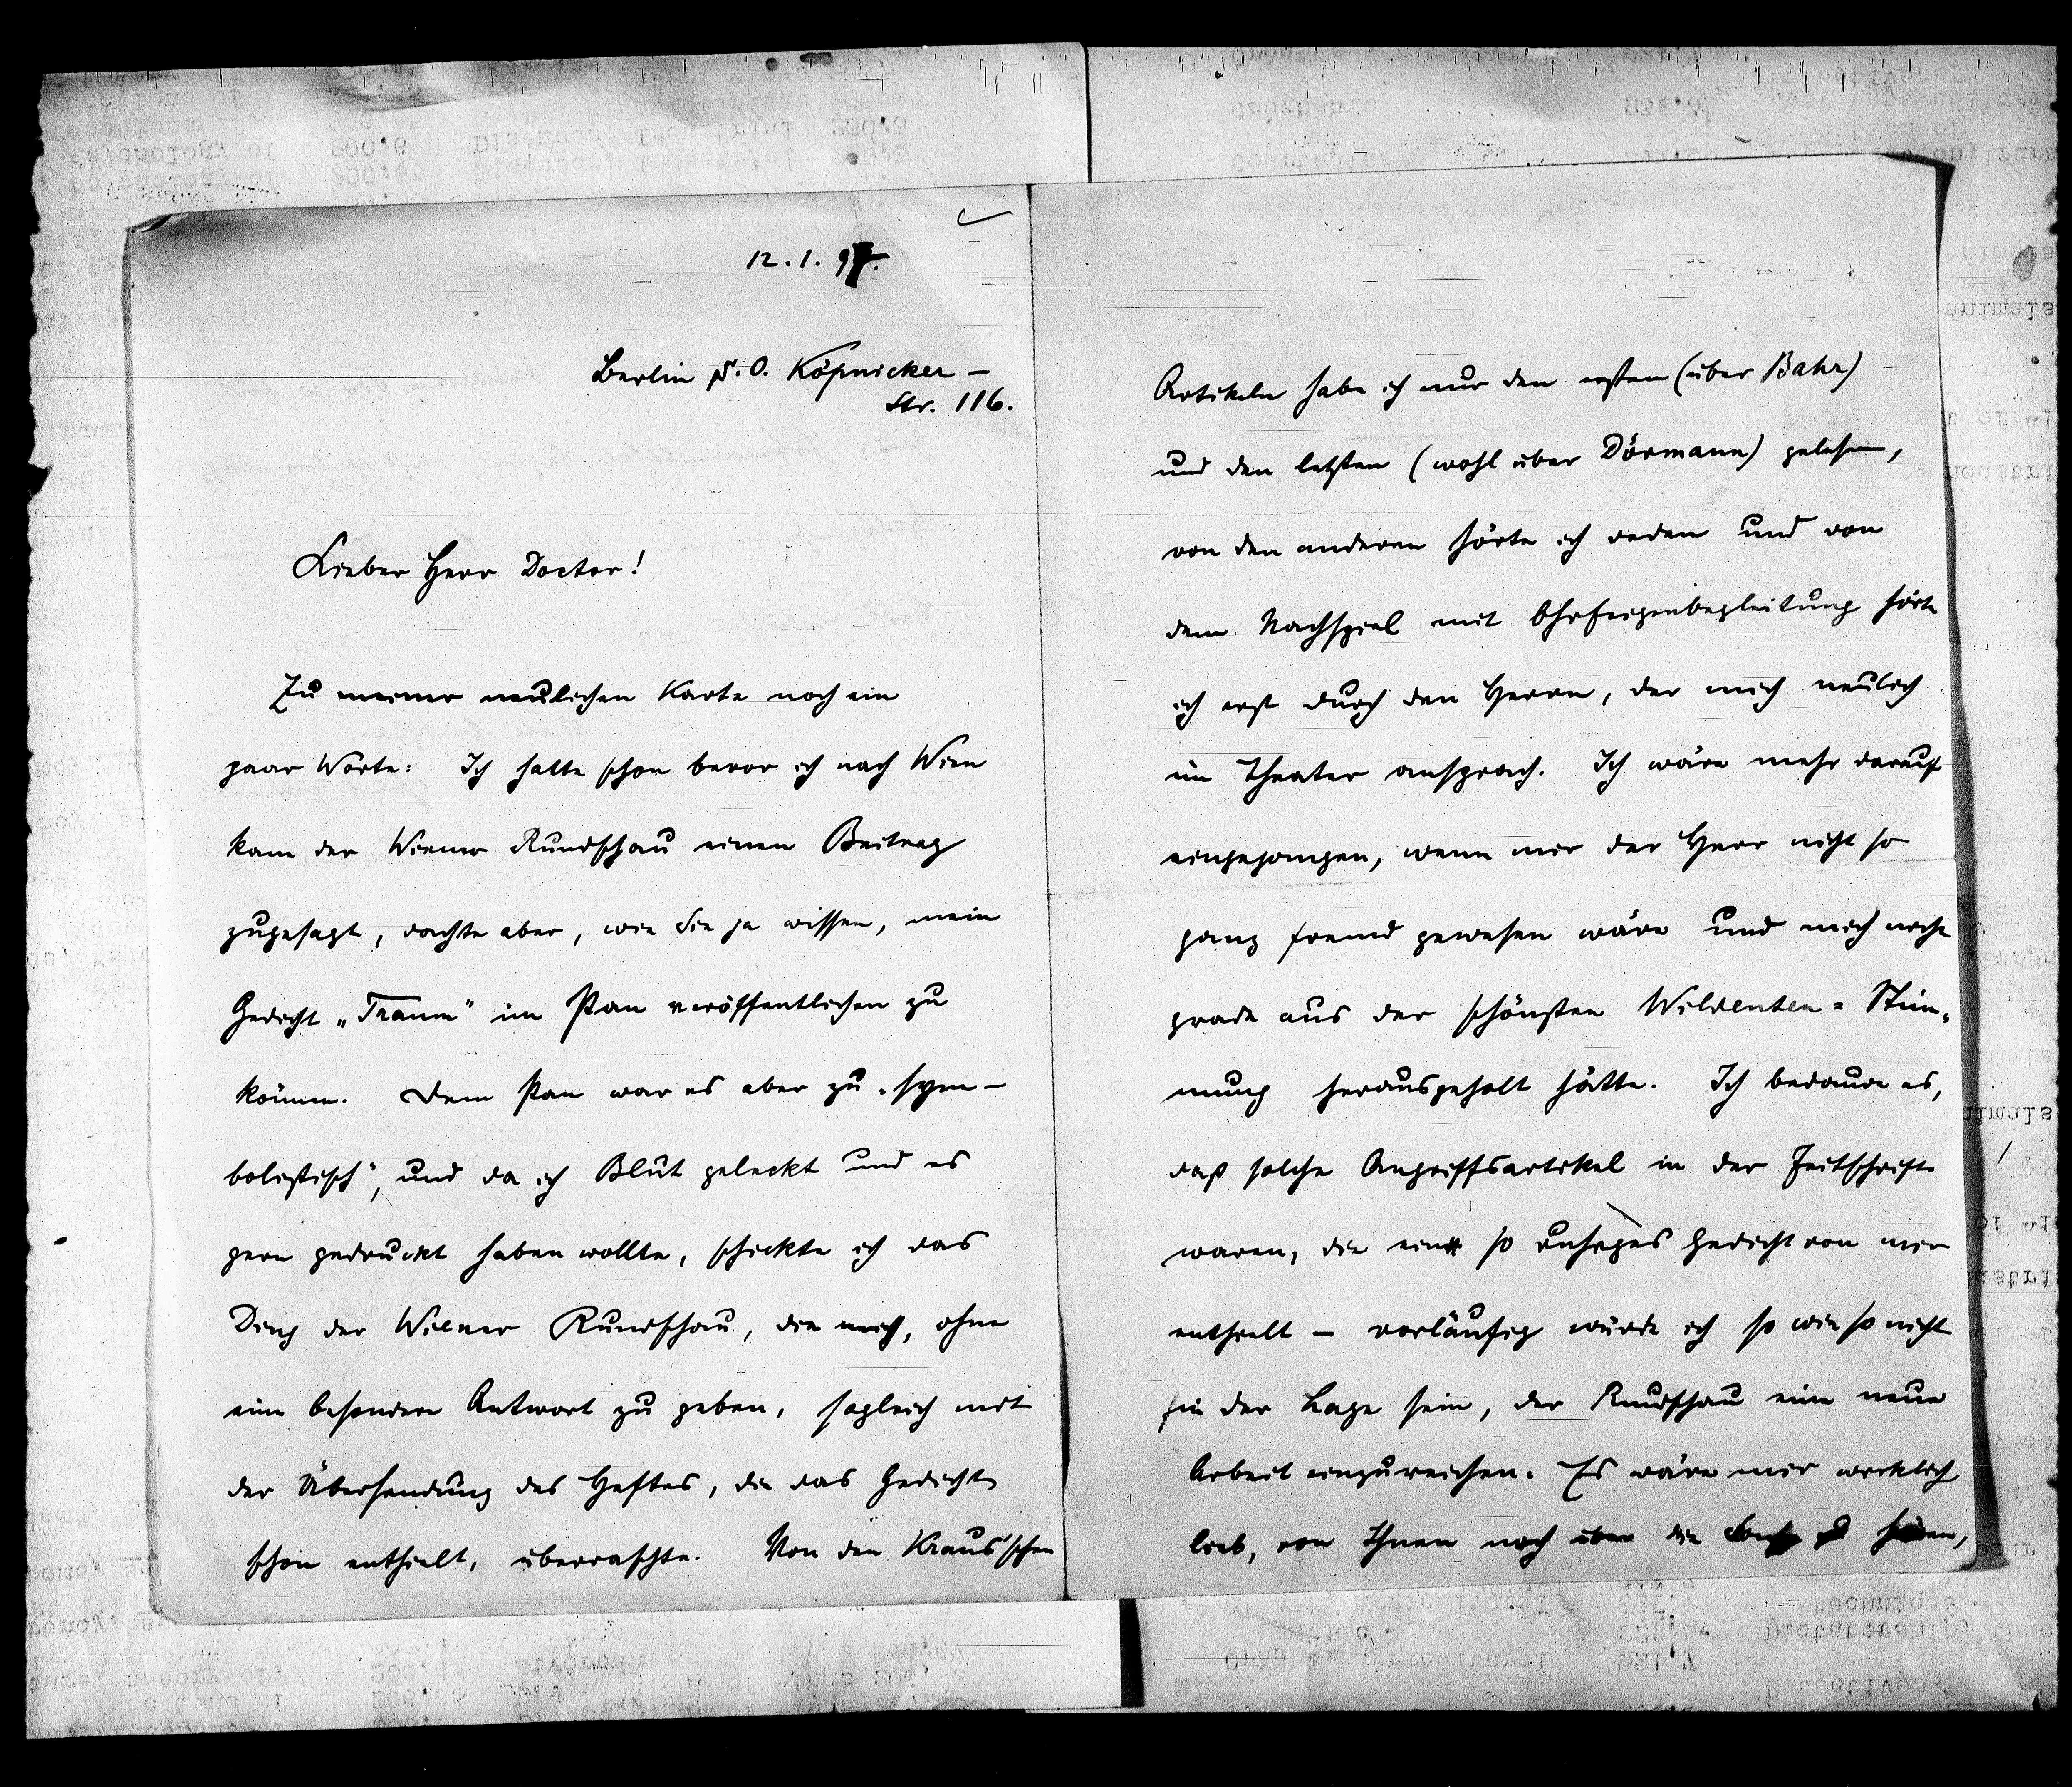 12. 1. 97.
Berlin S. O. Köpnicker –
Str. 116.
Lieber Herr Doctor!
Zu meiner neulichen Karte noch ein
paar Worte: Ich hatte schon bevor ich nach Wien
kam der Wiener Rundschau einen Beitrag
zugesagt, dachte aber, wie Sie ja wissen, mein
Gedicht „Traum“ im Pan veröffentlichen zu
können. Dem Pan war es aber zu „sym-
bolistisch“, und da ich Blut geleckt und es
gern gedruckt haben wollte, schickte ich das
Ding der Wiener Rundschau, die mich, ohne
eine besondere Antwort zu geben, sogleich mit
der Übersendung des Heftes, die das Gedicht
schon enthielt, überraschte. Von den Kraus'schen
Artikeln habe ich nur den ersten (über Bahr)
und den letzten (wohl über Dörmann) gelesen,
von den anderen hörte ich reden und von
dem Nachspiel mit Ohrfeigenbegleitung hörte
ich erst durch den Herrn, der mich neulich
im Theater ansprach. Ich wäre mehr darauf
eingegangen, wenn mir der Herr nicht so
ganz fremd gewesen wäre und mich nicht
grade aus der schönsten Wildenten-Stim-
mung herausgeholt hätte. Ich bedaure es,
daß solche Angriffsartikel in der Zeitschrift
waren, die ein so ruhiges Gedicht von mir
enthielt – vorläufig würde ich so wie so nicht
in der Lage sein, der Rundschau eine neue
Arbeit einzureichen. Es wäre mir wirklich
lieb, von Ihnen noch über die zu hören,